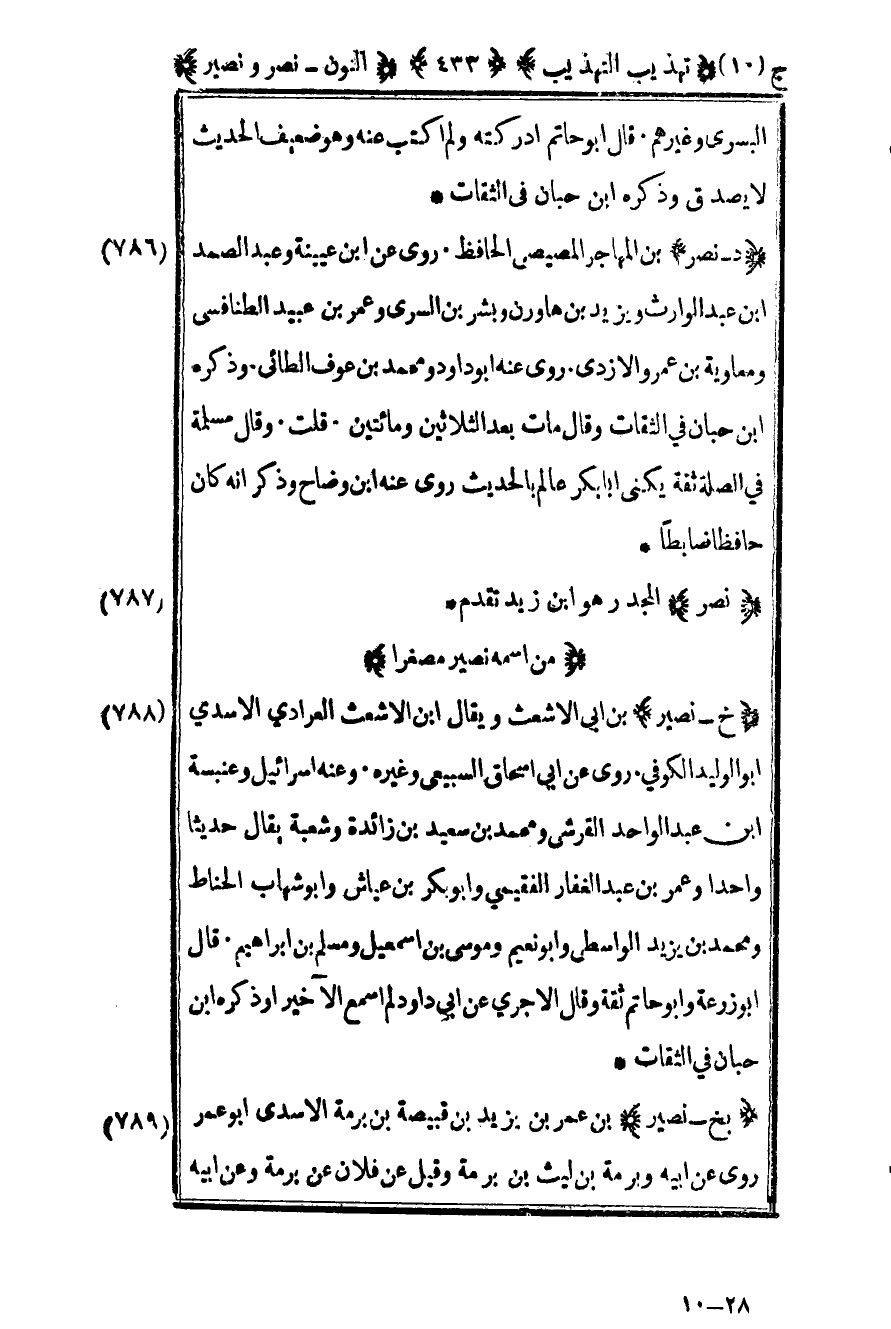 ج (١٠) ﴿ تهذيب التهذيب ﴾ ﴿ ٤٣٣ ﴾ ﴿ النون ـ نصر و نصير ﴾
البسرى وغيرهم ٠ قال ابوحاتم ادركته ولم اكتب عنه وهو ضعيف الحديث
لايصدق وذكره ابن حبان فى الثقات *
﴿ د ـ نصر ﴾ بن المهاجر المصيصى الحافظ ٠ روى عن ابن عيينة وعبد الصمد (٧٨٦)
ابن عبد الوارث ويزيد بن هاورن وبشر بن السرى وعمر بن عبيد الطنافسى
ومعاوية بن عمرو الازدى ٠ روى عنه ابوداود ومحمد بن عوف الطائى ٠ وذكره
ابن حبان في الثقات وقال مات بعد الثلاثين ومائتين ٠ قلت ٠ وقال مسلمة
في الصلة ثقة يكينى ابابكر عالم بالحديث روى عنه ابن وضاح وذكر انه كان
حافظا ضابطاً *
﴿ نصر ﴾ المجدر هو ابن زيد تقدم * (٧٨٧)
﴿ من اسمه نصير مصغرا ﴾
﴿ خ ـ نصير ﴾ بن ابي الاشعث ويقال ابن الاشعث العرادي الاسدي (٧٨٨)
ابو الوليد الكوفي ٠ روى عن ابي اسحاق السبيعى وغيره ٠ وعنه اسرائيل وعنبسة
ابن عبد الواحد القرشى ومحمد بن سعيد بن زائدة وشعبة يقال حديثا
واحدا وعمر بن عبد الغفار الفقيمي وابوبكر بن عياش وابوشهاب الحناط
ومحمد بن يزيد الواسطى وابونعيم وموسى بن اسمعيل ومسلم بن ابراهيم ٠ قال
ابوزرعة وابوحاتم ثقة وقال الاجري عن ابي داود لم اسمع الآخيرا وذكره ابن
حبان في الثقات *
﴿ بخ ـ نصير ﴾ بن عمر بن يزيد بن قبيصة بن برمة الاسدى ابو عمر (٧٨٩)
روى عن ابيه وبرمة بن ليث بن برمة وقيل عن فلان عن برمة وعن ابيه
٢٨ـ١٠